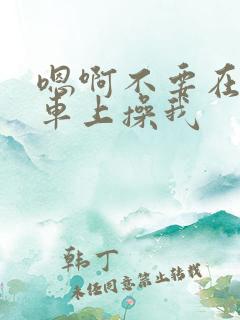 嗯啊不要在
车上操我
韩丁
未经同意禁止转载